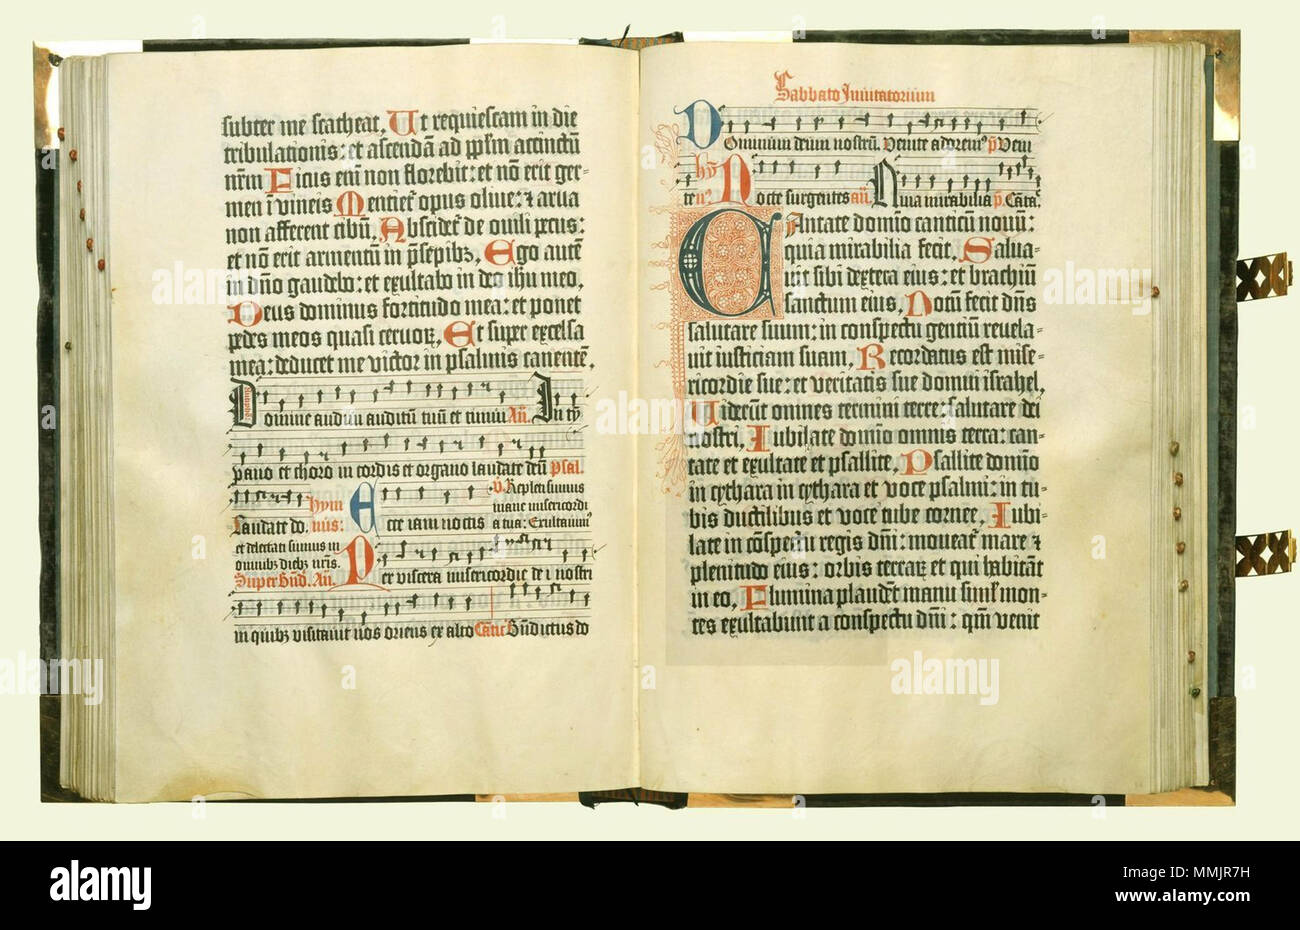 subter me scatheat. Ut requiescam in die
tribulationis: et ascendā ad pplm accinctū
nr̄m Ficus enī non florebit: et nō erit ger-
men ī vineis Mentiet᷑ opus olive: ⁊ arva
non afferent cibū. Abscidet᷑ de ovili pecus:
et nō erit armentū in p̄sepibꝫ. Ego autē
in dn̄o gaudebo: et exultabo in deo ihu meo.
Deus dominus fortitudo mea: et ponet
pedes meos quasi cervoꝝ. Et super excelsa
mea: deducet me victor in psalmis canentē.
Domine audivi auditū tuū et timui Añ. In ty
pano et choro in cordis et organo laudate deū Psal.
Laudate do. hym
nus: Ecce iam noctis
v̄. Repleti sumus
mane misericordi
a tua: Exultavimꝰ
et delectati sumus in
omnibꝫ diebꝫ nr̄is.
Super Bn̄d. Añ. Per viscera misericordie dei nostri
in quibꝫ visitavit nos oriens ex alto Cantic Bn̄dictus do
Sabbato Invitatorium
Dominum deum nostrū. Venite adoremꝰ p̄ Veni
te hȳ nꝰ. Nocte surgentes añ. Quia mirabilia p̄. Cāta.
CAntate domīo canticū novū:
quia mirabilia fecit. Salva-
vit sibi dextera eius: et brachiū
sanctum eius. Notū fecit dn̄s
salutare suum: in conspectu gentiū revela-
vit iusticiam suam. Recordatus est mise-
ricordie sue: et veritatis sue domui israhel.
Viderūt omnes termini terre: salutare dei
nostri. Iubilate domīo omnis terra: can-
tate et exultate et psallite. Psallite domīo
in cythara in cythara et voce psalmi: in tu-
bis ductilibus et voce tube cornee. Iubi-
late in cōspectu regis dn̄i: moveat᷑ mare ⁊
plenitudo eius: orbis terraꝝ et qui habitāt
in eo. Flumina plaudēt manu simlᷓ mon-
tes exultabunt a conspectu dn̄i: qm̄ venit
alamy
MMJR7H
www.alamy.com